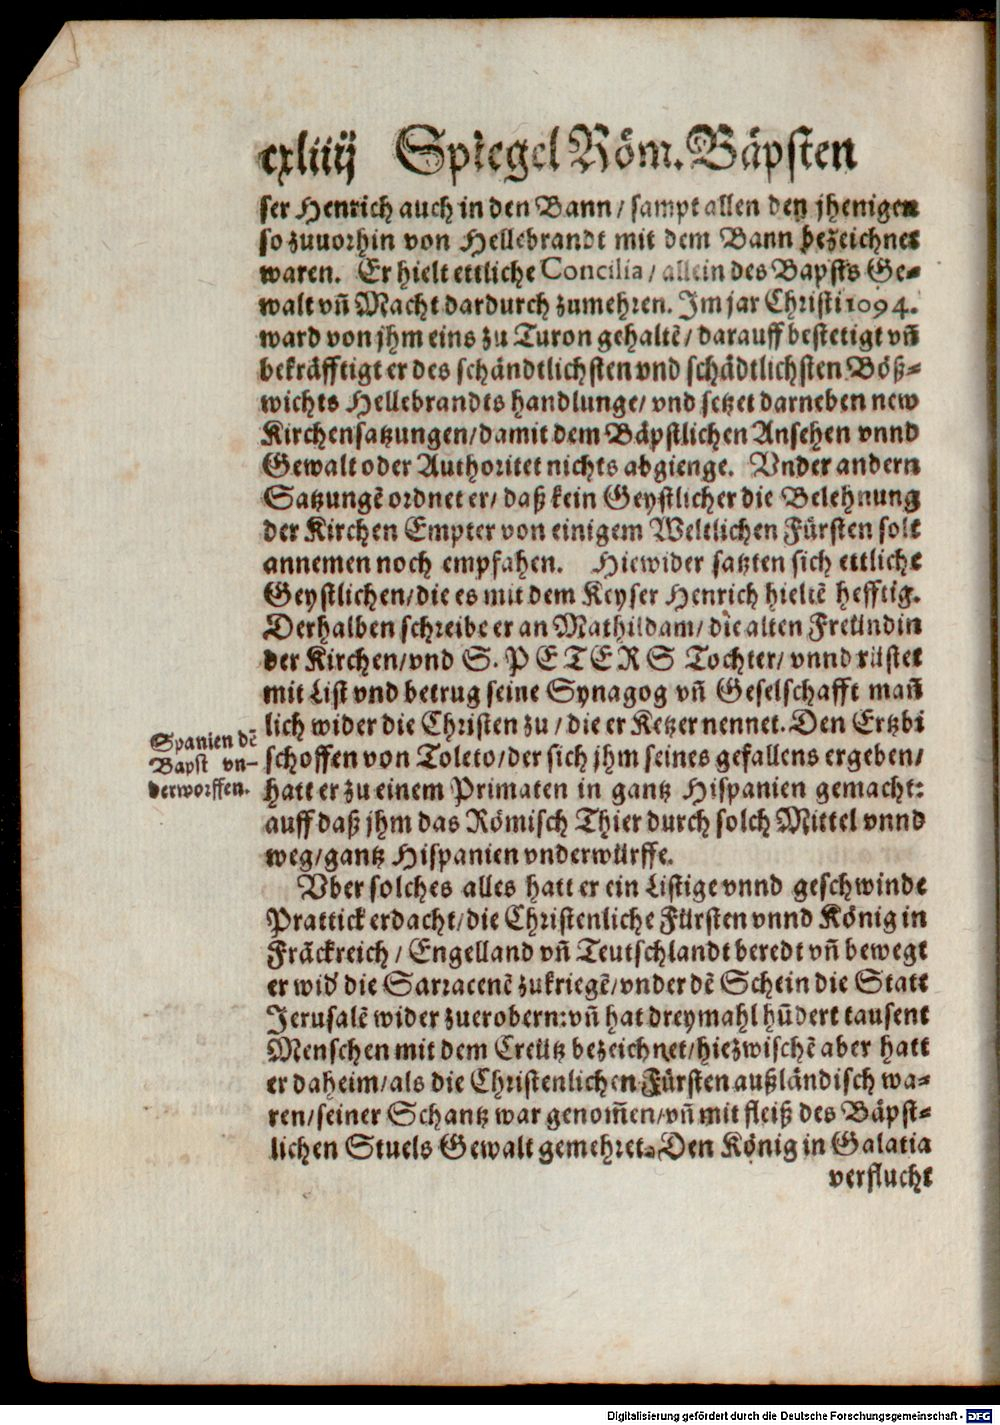 cxliiij Spiegel Röm. Bäpsten
ser Henrich auch in den Bann / sampt allen den jhenigen
so zuuorhin von Hellebrandt mit dem Bann bezeichnet
waren. Er hielt ettliche Concilia / allein des Bapsts Ge-
walt vñ Macht dardurch zumehren. Im jar Christi 1094.
ward von jhm eins zu Turon gehaltẽ / darauff bestetigt vñ
bekräfftigt er des schändtlichsten vnd schädtlichsten Böß-
wichts Hellebrandts handlunge / vnd setzet darneben new
Kirchensatzungen / damit dem Bäpstlichen Ansehen vnnd
Gewalt oder Authoritet nichts abgienge. Vnder andern
Satzungẽ ordnet er / daß kein Geystlicher die Belehnung
der Kirchen Empter von einigem Weltlichen Fürsten solt
annemen noch empfahen. Hiewider satzten sich ettliche
Geystlichen / die es mit dem Keyser Henrich hieltẽ hefftig.
Derhalben schreibe er an Mathildam / die alten Freündin
der Kirchen / vnd S. PETERS Tochter / vnnd rüstet
mit List vnd betrug seine Synagog vñ Geselschafft mañ
lich wider die Christen zu / die er Ketzer nennet. Den Ertzbi
schoffen von Toleto / der sich jhm seines gefallens ergeben /
hatt er zu einem Primaten in gantz Hispanien gemacht:
auff daß jhm das Römisch Thier durch solch Mittel vnnd
weg / gantz Hispanien vnderwürffe.
Spanien dẽ
Bapst vn-
derworffen.
Vber solches alles hatt er ein Listige vnnd geschwinde
Prattick erdacht / die Christenliche Fürsten vnnd König in
Frãckreich / Engelland vñ Teutschlandt beredt vñ bewegt
er wid' die Sarracenẽ zukriegẽ / vnder dẽ Schein die Statt
Jerusalẽ wider zuerobern: vñ hat dreymahl hũdert tausent
Menschen mit dem Creütz bezeichnet / hiezwischẽ aber hatt
er daheim / als die Christenlichen Fürsten außländisch wa-
ren / seiner Schantz war genom̃en / vñ mit fleiß des Bäpst-
lichen Stuels Gewalt gemehret. Den König in Galatia
verflucht
Digitalisierung gefördert durch die Deutsche Forschungsgemeinschaft - DFG